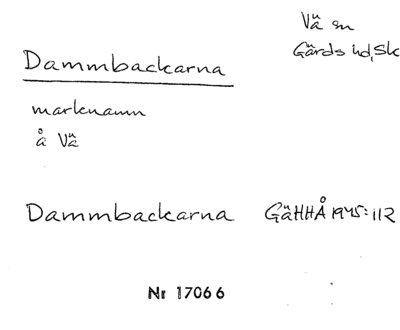 Vä sn
Gärds hd, Sk
Dammbackarna
marknamn
å Vä
Dammbackarna GäHHÅ 1945:112
Nr 17066